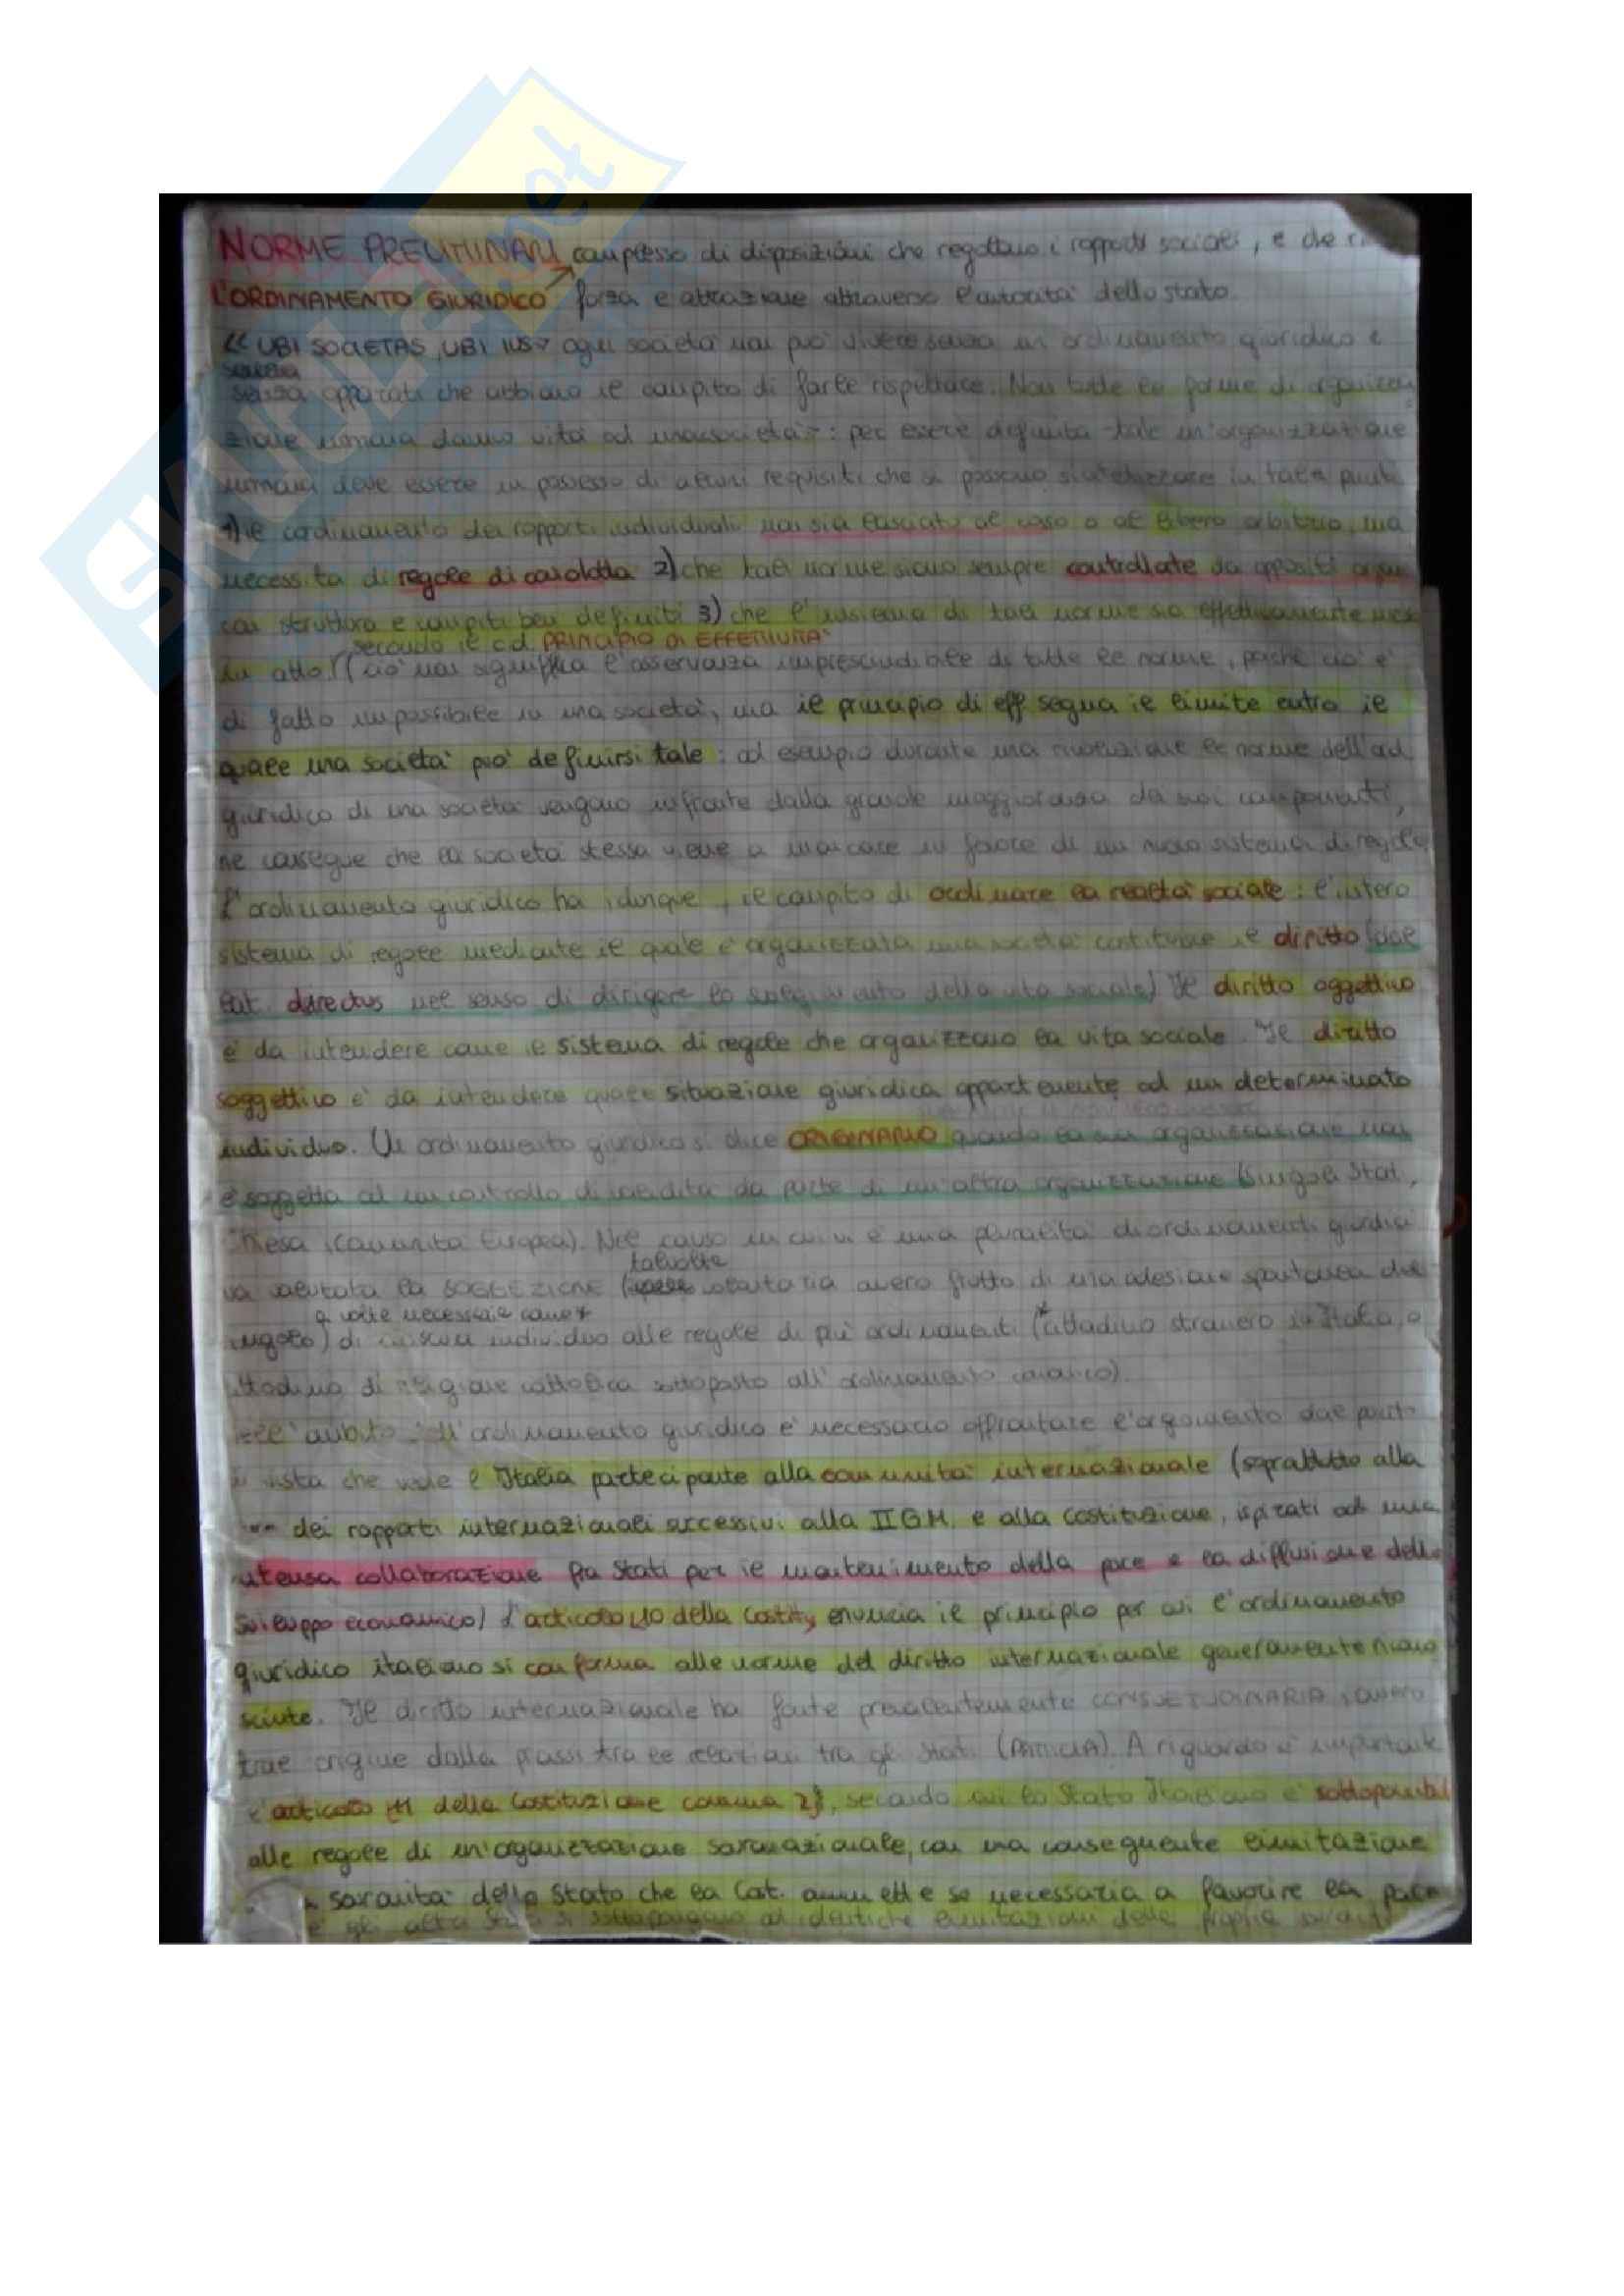 SKUOLA.net
NORME PRELIMINARI complesso di disposizioni che regolano i rapporti sociali, e che
L'ORDINAMENTO GIURIDICO forza e attrazione attraverso l'autorità dello stato.
<< UBI SOCIETAS, UBI IUS>> ogni società non può vivere senza un ordinamento giuridico e
senza apparati che abbiano il compito di farle rispettare. Non tutte le forme di organizza
zione umana danno vita ad una società: per essere definita tale un'organizzazione
umana deve essere in possesso di alcuni requisiti che si possono sintetizzare in tali punti
1) il coordinamento dei rapporti individuali non sia lasciato al caso o al libero arbitrio, ma
necessita di regole di condotta 2) che tali norme siano sempre controllate da appositi organi
con struttura e compiti ben definiti 3) che l'insieme di tali norme sia effettivamente
secondo il c.d. PRINCIPIO DI EFFETTIVITA'
in atto (ciò non significa l'osservanza imprescindibile di tutte le norme, poichè ciò è
di fatto impossibile in una società, ma il principio di eff segna il limite entro il
quale una società può definirsi tale: ad esempio durante una rivoluzione le norme dell'ord
giuridico di una società vengono infrante dalla grande maggioranza dei suoi componenti,
ne consegue che la società stessa viene a mancare in favore di un nuovo sistema di regole
L'ordinamento giuridico ha, dunque, il compito di ordinare la realtà sociale: l'intero
sistema di regole mediante il quale è organizzata una società costituisce il diritto (dal
lat. directus nel senso di dirigere lo svolgimento della vita sociale) Il diritto oggettivo
è da intendere come il sistema di regole che organizzano la vita sociale. Il diritto
soggettivo è da intendere quale situazione giuridica appartenente ad un determinato
individuo. Un ordinamento giuridico si dice ORIGINARIO quando la sua organizzazione non
è soggetta ad un controllo di validità da parte di un'altra organizzazione (singoli Stati,
Chiesa, Comunità Europea). Nel caso in cui vi è una pluralità di ordinamenti giuridici
talvolta
va valutata la SOGGEZIONE volontaria ovvero frutto di una adesione spontanea del
a volte necessaria come*
singolo) di ciascun individuo alle regole di più ordinamenti (*cittadino straniero in Italia, o
cittadino di religione cattolica sottoposto all'ordinamento canonico).
Nell'ambito dell'ordinamento giuridico è necessario affrontare l'argomento dal punto
di vista che vede l'Italia partecipante alla comunità internazionale (soprattutto alla
dei rapporti internazionali successivi alla II G.M. e alla costituzione, ispirati ad una
intensa collaborazione fra Stati per il mantenimento della pace e la diffusione dello
Sviluppo economico) L'articolo 10 della Costit, enuncia il principio per cui l'ordinamento
giuridico italiano si conforma alle norme del diritto internazionale generalmente ricono
sciute. Il diritto internazionale ha fonte prevalentemente CONSUETUDINARIA, ovvero
trae origine dalla prassi tra le relazioni tra gli Stati. A riguardo è importante
l'articolo 11 della Costituzione comma 2, secondo cui lo Stato Italiano è
alle regole di un'organizzazione sovranazionale, con una conseguente limitazione
sovranità dello Stato che la Cost. ammette se necessaria a favorire la pace
e gli altri Stati si sottopongano ad identiche limitazioni della propria